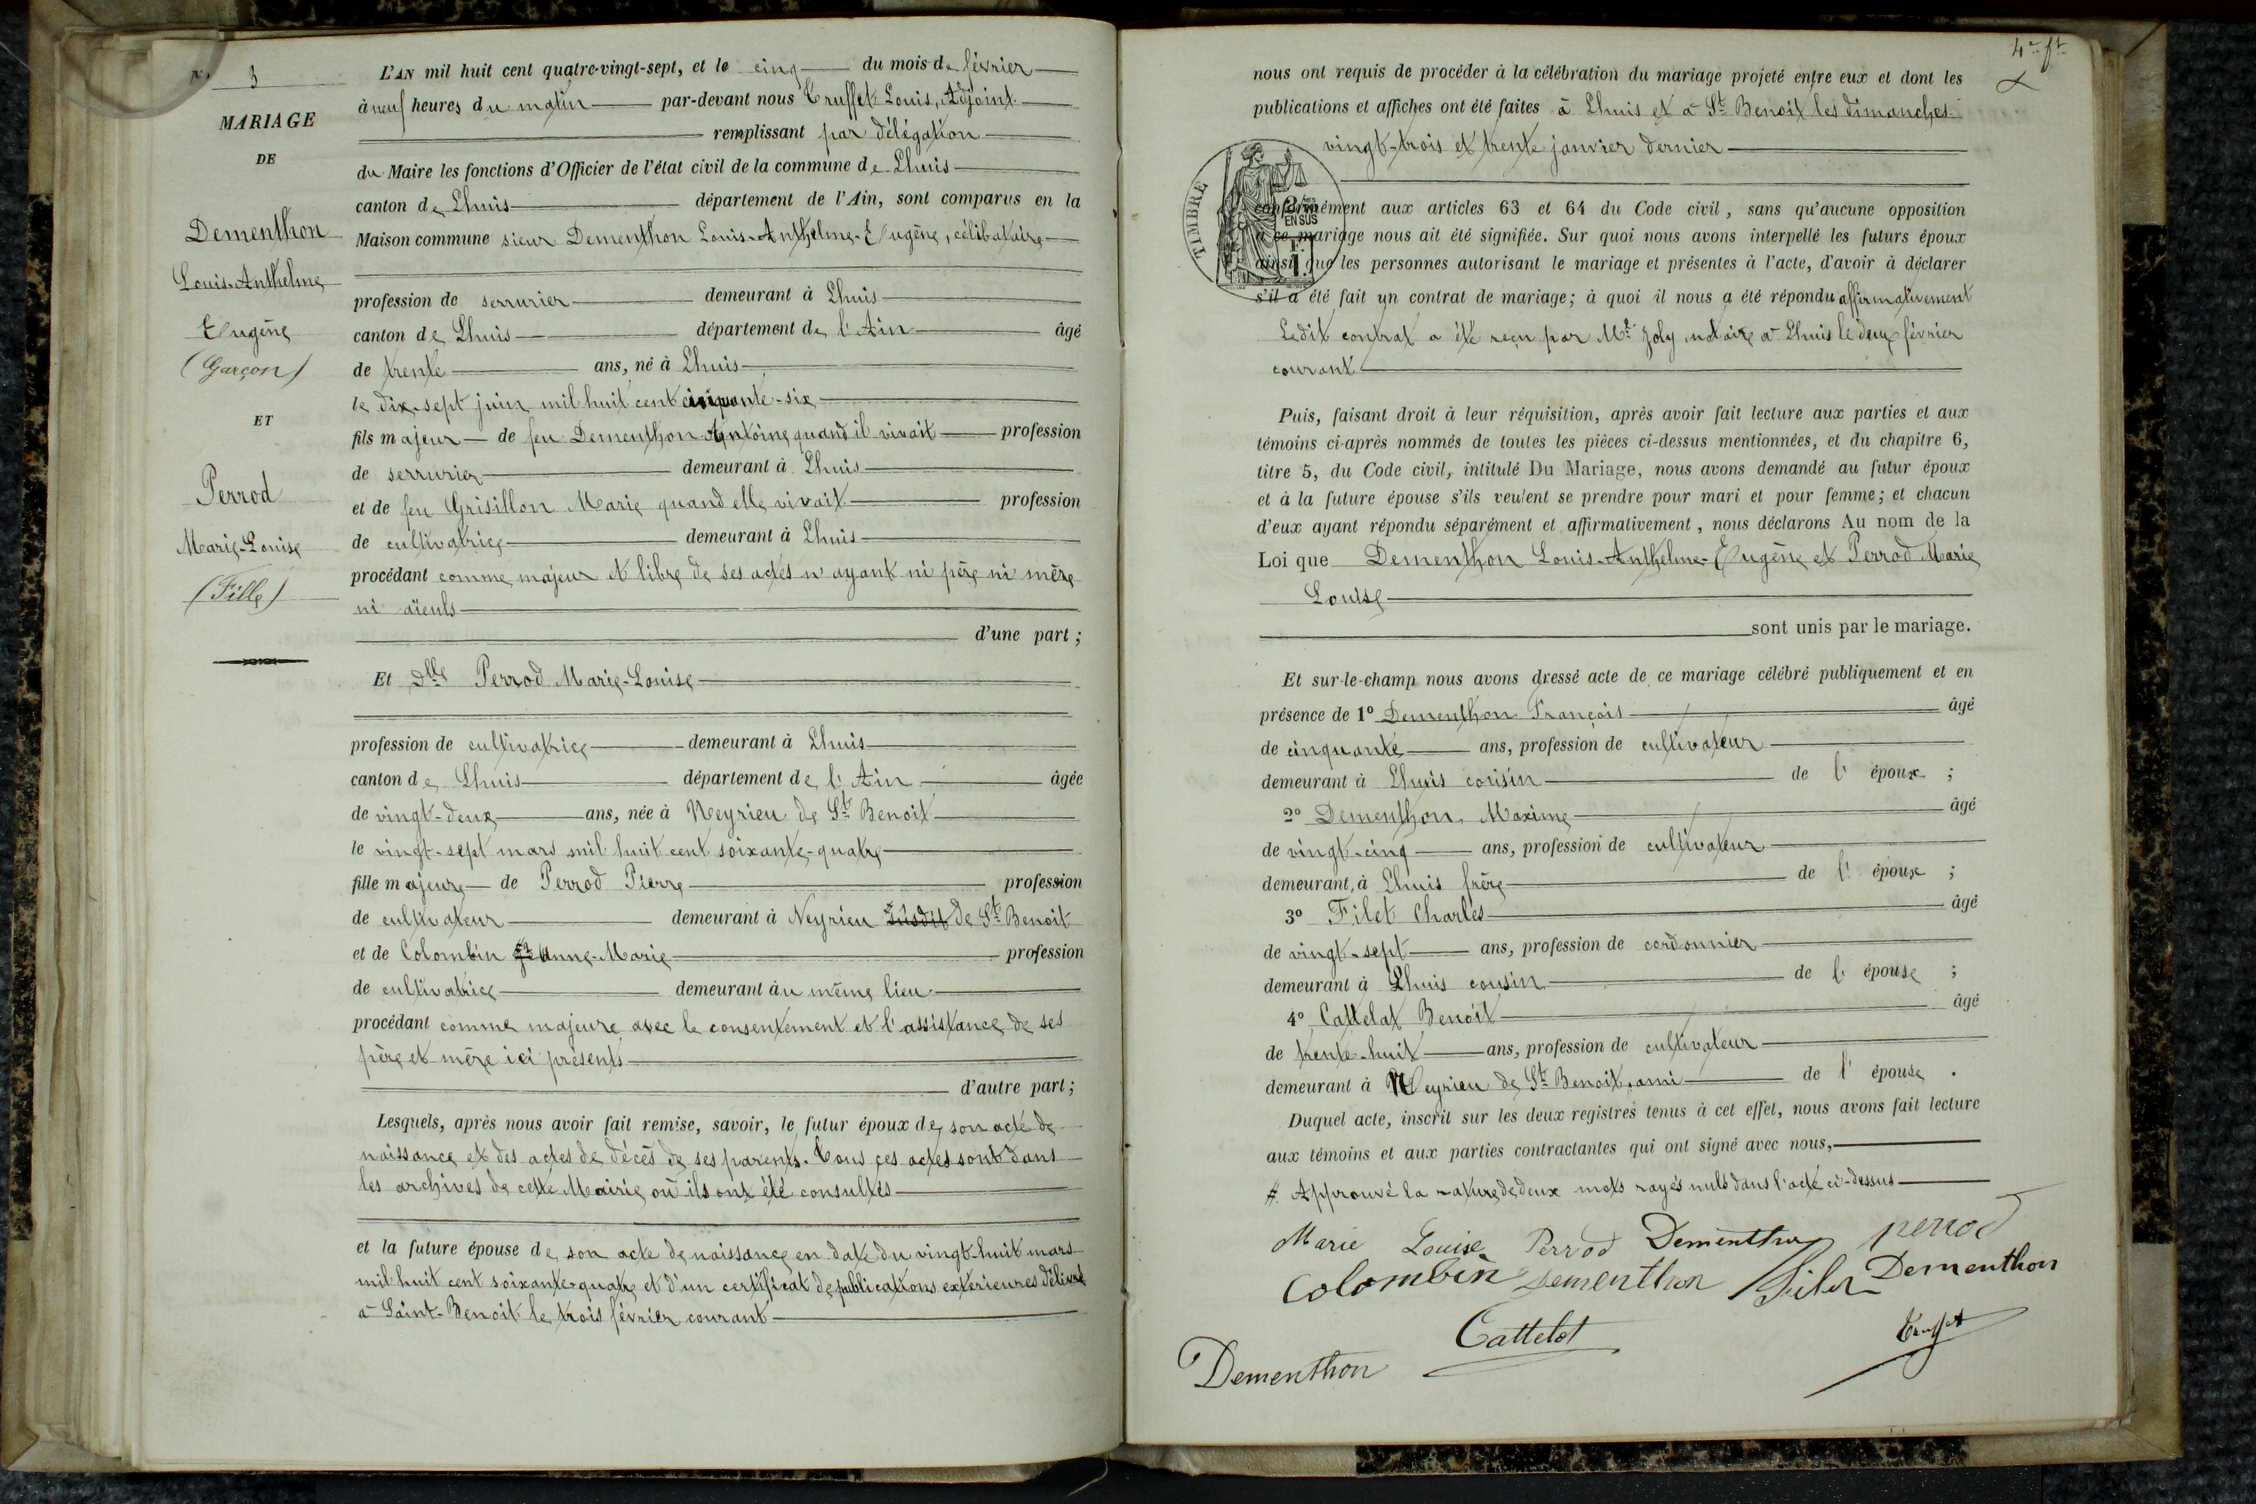 N.° 3
MARIAGE
DE
Dementhon
Louis-Anthelme
Eugène
(Garçon)
ET
Perrod
Marie-Louise
(Fille)
L'AN mil huit cent quatre-vingt-sept, et le cinq du mois de février
à neuf heures du matin par-devant nous Truffet Louis, Adjoint
remplissant par délégation
du Maire les fonctions d'Officier de l'état civil de la commune de Lhuis
canton de Lhuis département de l'Ain, sont comparus en la
Maison commune sieur Dementhon Louis-Anthelme-Eugène, célibataire
profession de serrurier demeurant à Lhuis
canton de Lhuis département de l'Ain âgé
de trente ans, né à Lhuis
le dix-sept juin mil huit cent cinquante-six
fils majeur de feu Dementhon Antoine quand il vivait profession
de serrurier demeurant à Lhuis
et de feu Grisillon Marie quand elle vivait profession
de cultivatrice demeurant à Lhuis
procédant comme majeur et libre de ses actes n'ayant ni père ni mère
ni aïeuls
d'une part ;
Et Dlle Perrod Marie-Louise
profession de cultivatrice demeurant à Lhuis
canton de Lhuis département de l'Ain âgée
de vingt-deux ans, née à Neyrieu de St Benoit
le vingt-sept mars mil huit cent soixante-quatre
fille majeure de Perrod Pierre profession
de cultivateur demeurant à Neyrieu susdit de St Benoit
et de Colombin Anne-Marie profession
de cultivatrice demeurant au même lieu
procédant comme majeure avec le consentement et l'assistance de ses
père et mère ici présents
d'autre part ;
Lesquels, après nous avoir fait remise, savoir, le futur époux de son acte de
naissance et des actes de décès de ses parents. Tous ces actes sont dans
les archives de cette Mairie où ils ont été consultés
et la future épouse de son acte de naissance en date du vingt-huit mars
mil huit cent soixante-quatre et d'un certificat de publications extérieures délivré
à Saint-Benoit le trois février courant
4e ft
nous ont requis de procéder à la célébration du mariage projeté entre eux et dont les
publications et affiches ont été faites à Lhuis et à St Benoit les dimanches
vingt-trois et trente janvier dernier
TIMBRE
2/10 EN SUS
conformément aux articles 63 et 64 du Code civil, sans qu'aucune opposition
à ce mariage nous ait été signifiée. Sur quoi nous avons interpellé les futurs époux
ainsi que les personnes autorisant le mariage et présentes à l'acte, d'avoir à déclarer
s'il a été fait un contrat de mariage ; à quoi il nous a été répondu affirmativement
Ledit contrat a été reçu par Me Joly notaire à Lhuis le deux février
courant
Puis, faisant droit à leur réquisition, après avoir fait lecture aux parties et aux
témoins ci-après nommés de toutes les pièces ci-dessus mentionnées, et du chapitre 6,
titre 5, du Code civil, intitulé Du Mariage, nous avons demandé au futur époux
et à la future épouse s'ils veulent se prendre pour mari et pour femme ; et chacun
d'eux ayant répondu séparément et affirmativement, nous déclarons Au nom de la
Loi que Dementhon Louis-Anthelme-Eugène et Perrod Marie
Louise
sont unis par le mariage.
Et sur-le-champ nous avons dressé acte de ce mariage célébré publiquement et en
présence de 1° Dementhon François âgé
de cinquante ans, profession de cultivateur
demeurant à Lhuis cousin de l'époux ;
2° Dementhon Maxime âgé
de vingt-cinq ans, profession de cultivateur
demeurant à Lhuis frère de l'époux ;
3° Filet Charles âgé
de vingt-sept ans, profession de cordonnier
demeurant à Lhuis cousin de l'épouse ;
4° Cattelat Benoit âgé
de trente-huit ans, profession de cultivateur
demeurant à Neyrieu de St Benoit, ami de l'épouse.
Duquel acte, inscrit sur les deux registres tenus à cet effet, nous avons fait lecture
aux témoins et aux parties contractantes qui ont signé avec nous,
#. Approuvé la rature de deux mots rayés nuls dans l'acte ci-dessus
Marie Louise Perrod Dementhon perrod
Colombin Dementhon Filet Dementhon
Cattelat Truffet
Dementhon